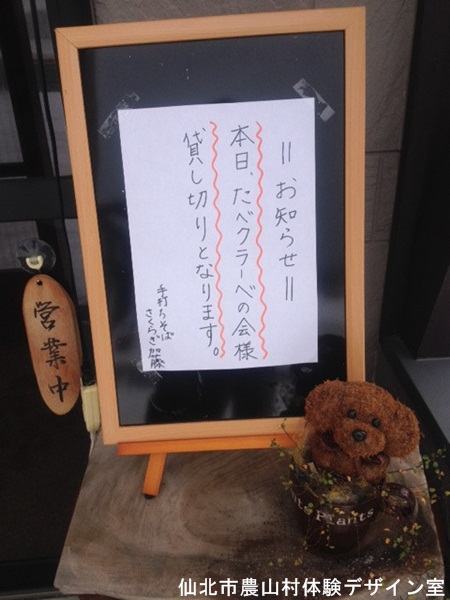 =お知らせ=
本日、たべクラーベの会様
貸し切りとなります。
手打ちそば
さくらぎ加藤
営業中
Plants
仙北市農山村体験デザイン室